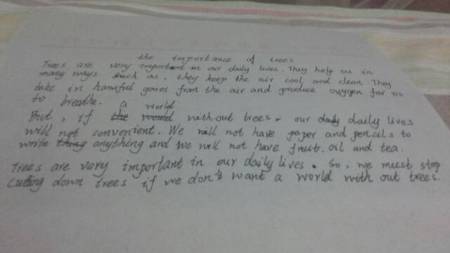 the importance of trees
Trees are very important in our daily lives. They help us in
many ways such as, they keep the air cool and clean. They
take in harmful gases from the air and produce oxygen for us
to breathe.
But, if the world a world without trees. our daily daily lives
will not convenient. We will not have paper and pencils to
write thing anything and we will not have fruit. oil and tea.
Trees are very important in our daily lives. So, we must stop
cutting down trees if we don't want a world with out trees.